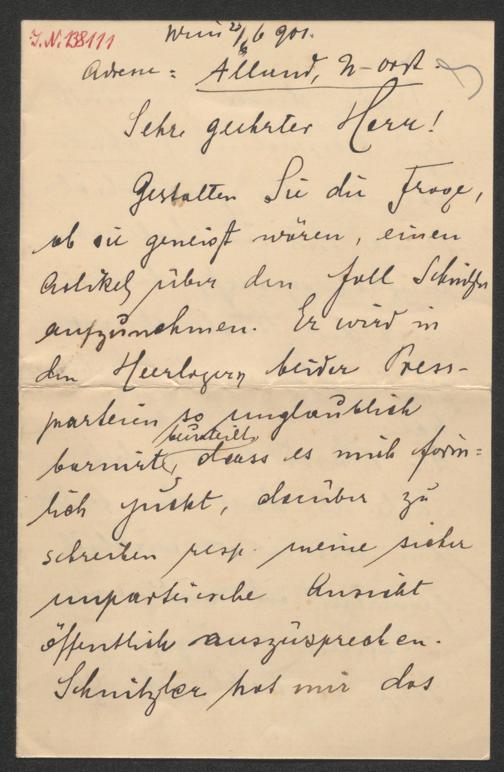 J.N. 138111
Wien 23/6 901.
Adresse: Alland, N-öst.
Sehr geehrter Herr!
Gestatten Sie die Frage,
ob sie geneigt wären, einen
Artikel über den Fall Schnitzler
aufzunehmen. Er wird in
den Heerlagern beider Press-
parteien so unglaublich
beurteilt,
bornirt, dass es mich förm-
lich juckt, darüber zu
schreiben resp. meine sicher
unparteiische Ansicht
öffentlich auszusprechen.
Schnitzler hat mir das